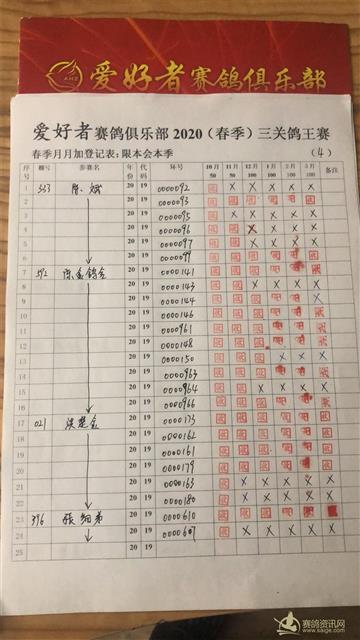 AHZ
爱好者赛鸽俱乐部
爱好者赛鸽俱乐部 2020（春季）三关鸽王赛
春季月月加登记表：限本会本季 （4）
序号 棚号 参赛名 年份 代码 环号 10月 50 11月 50 12月 100 1月 100 2月 100 3月 100 备注
1 333 20 19 0000092 X X X X X
2 20 19 0000093
3 20 19 0000095 X X X X X
4 20 19 0000096 X X X X X
5 20 19 0000097 X X X X X
6 20 19 0000099
7 20 19 0000141
8 20 19 0000143 X X X X X
9 20 19 0000144 X
10 20 19 0000146
11 20 19 0000961
12 20 19 0000148
13 20 19 0000150 X X X
14 20 19 0000963
15 20 19 0000964 X X X X
16 20 19 0000966
17 021 20 19 0000173
18 20 19 0000162
19 20 19 0000161
20 20 19 0000179
21 20 19 0000163 X X X X X
22 20 19 0000180 X X X X X
23 376 20 19 0000610
24 20 19 0000607 X X X X X
25 20 19
赛鸽资讯网
www.saige.com